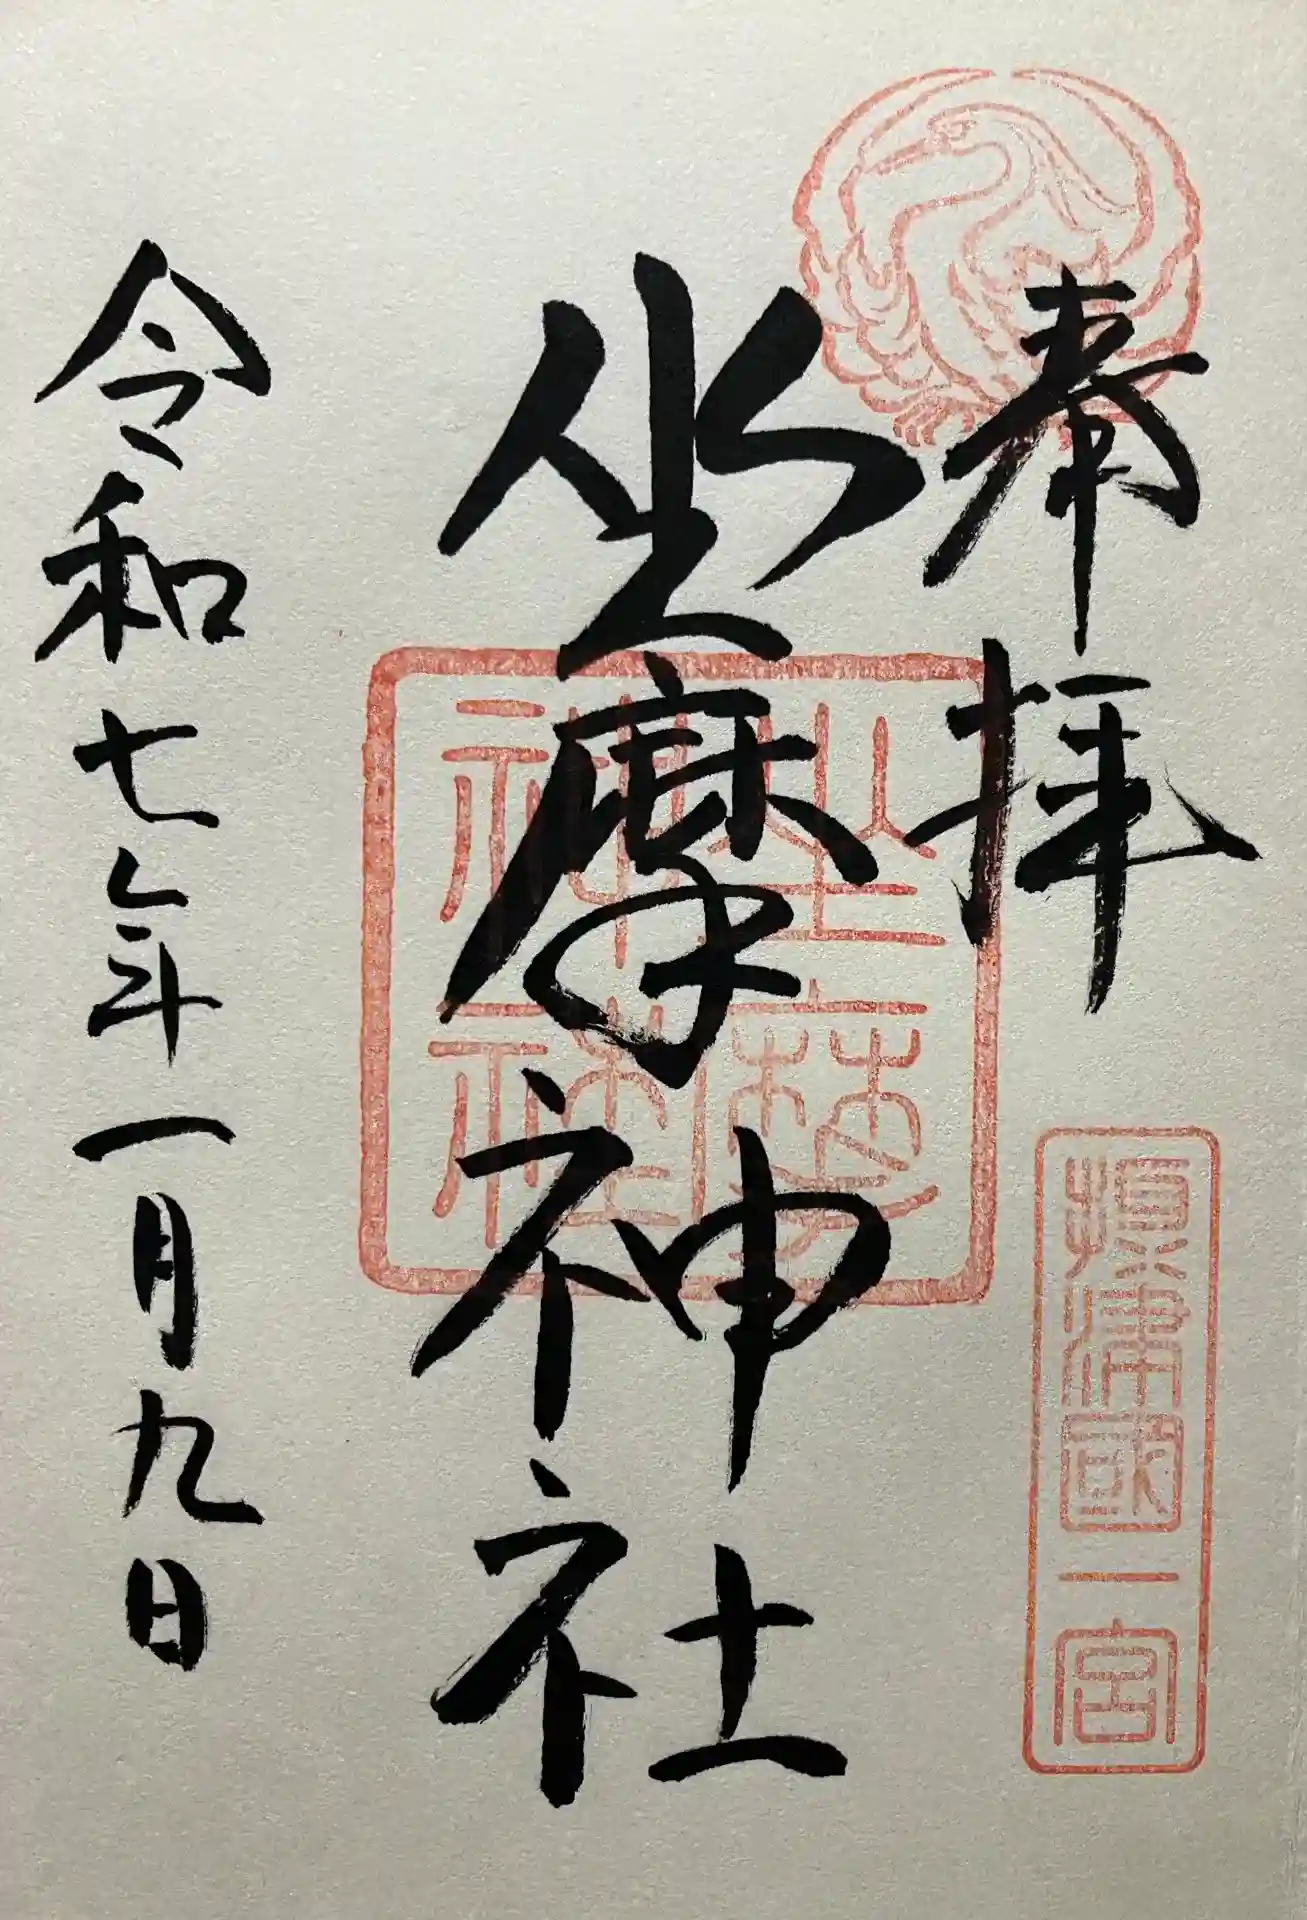 奉拝
攝津國一宮
坐摩神社
坐摩神社
令和七年一月九日